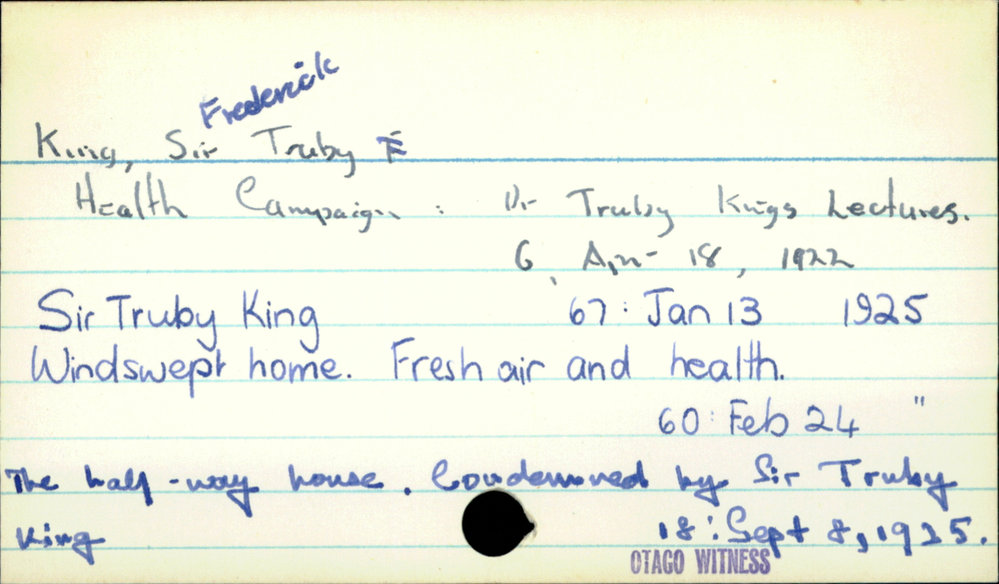 Frederick
King, Sir Truby F
Health Campaign : Dr Truby Kings Lectures.
6, Apr 18, 1922
Sir Truby King 67: Jan 13 1925
Windswept home. Fresh air and health.
60: Feb 24 "
The half-way house. Condemned by Sir Truby
King 18: Sept 8, 1925.
OTAGO WITNESS